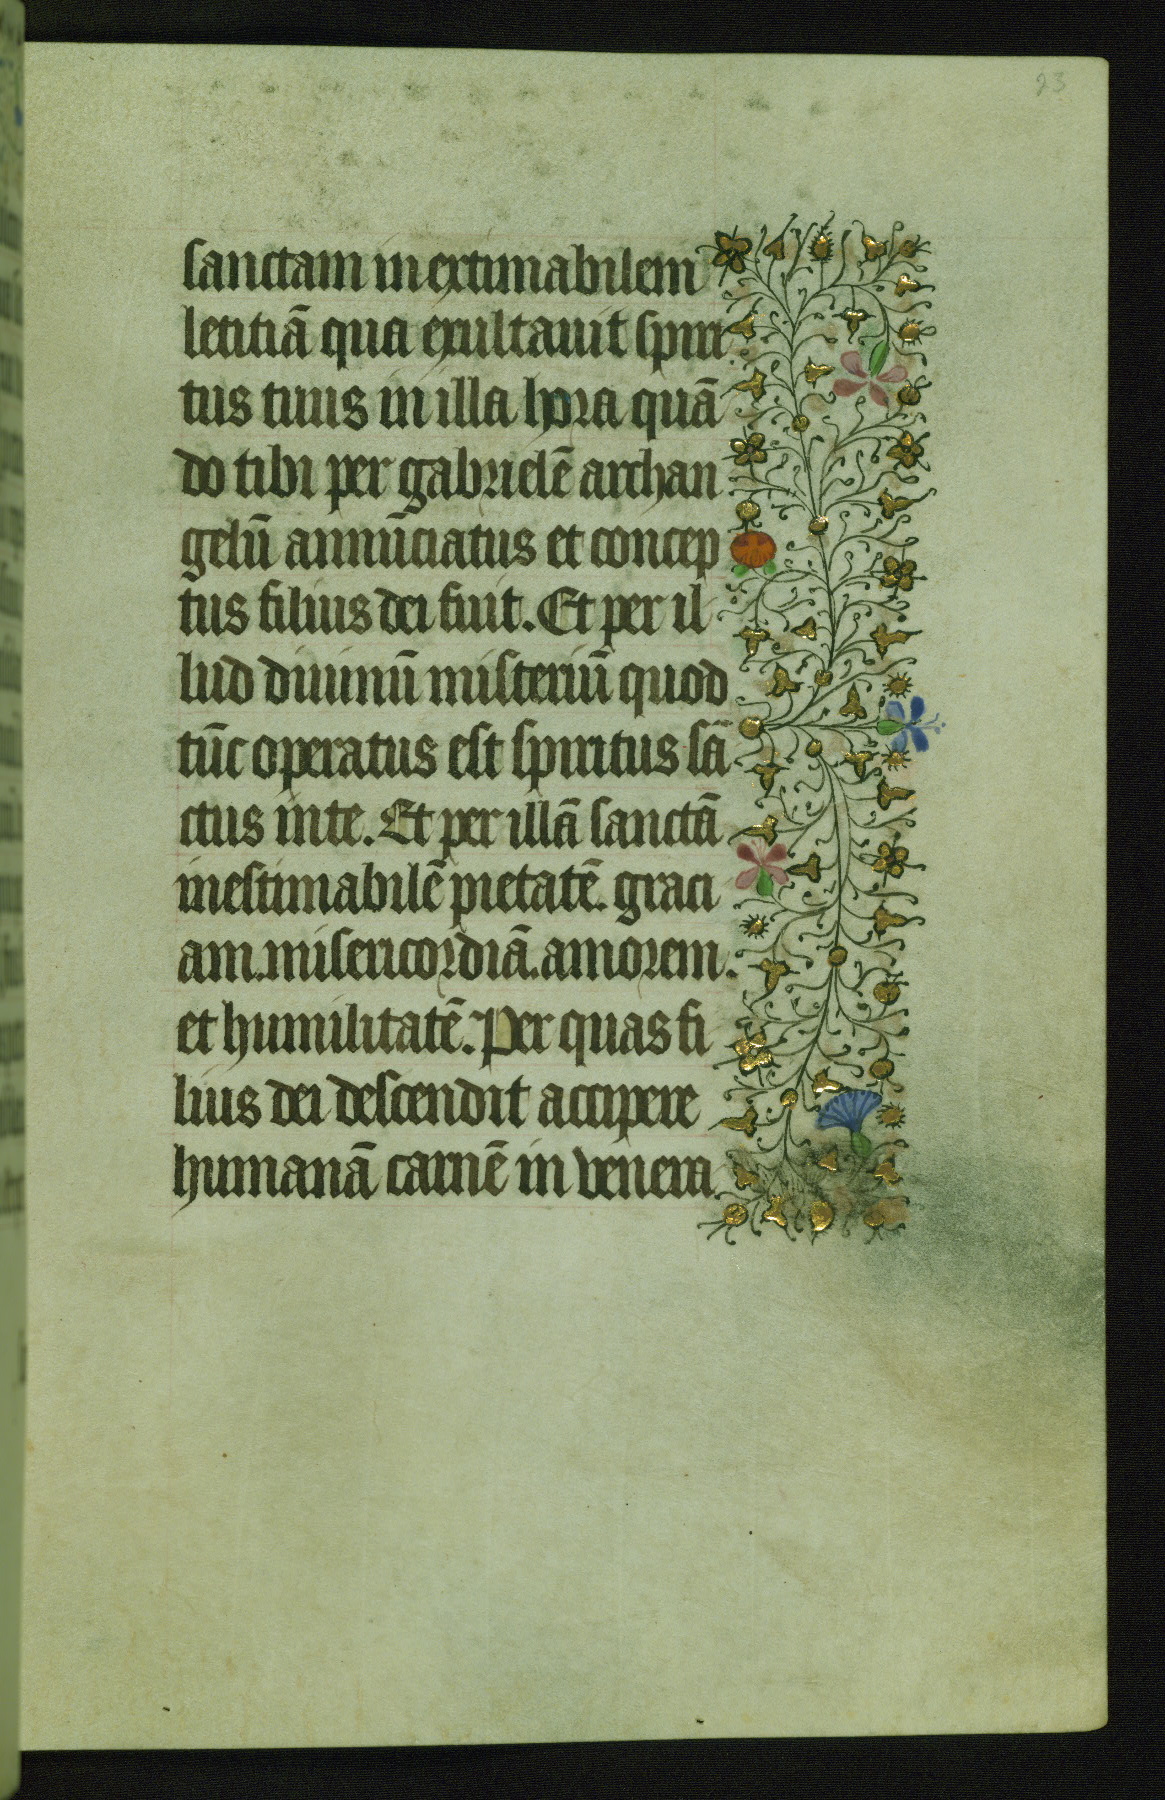 23
sanctam in extimabilem
letitiā qua exultauit spiri
tus tuus in illa hora quā
do tibi per gabrielē archan
gelū annūciatus et concep
tus filius dei fuit. Et per il
lud diuinū misteriū quod
tūc operatus est spiritus sā
ctus in te. Et per illā sanctā
inestimabilē pietatē. graci
am. misericordiā. amorem.
et humilitatē. Per quas fi
lius dei descendit accipere
humanā carnē in venera